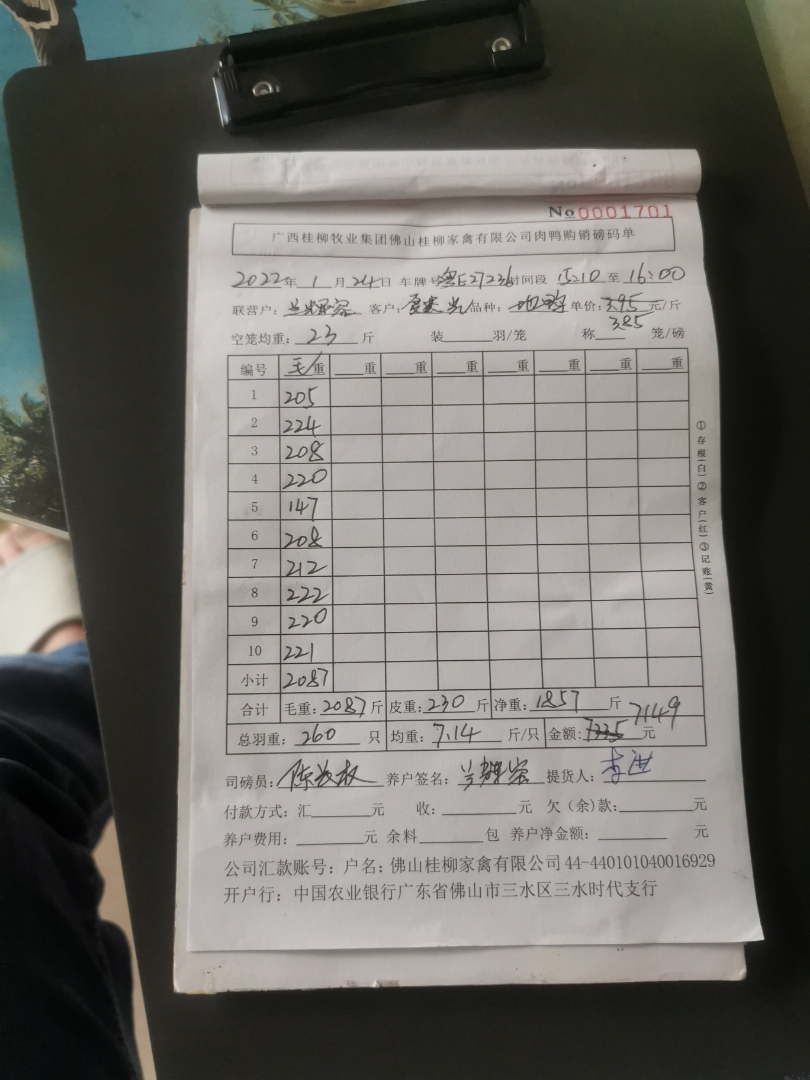 No 0001701
广西桂柳牧业集团佛山桂柳家禽有限公司肉鸭购销磅码单
2022年 1 月 24 日 车牌号:粤E27236 时间段 15:10 至 16:00
联营户: 客户: 品种: 单价: 3.95 元/斤
3.85
空笼均重: 23 斤 装 羽/笼 称 笼/磅
编号 毛重 重 重 重 重 重 重 重
1 205
2 224
3 208
4 220
5 147
6 208
7 212
8 222
9 220
10 221
小计 2087
合计 毛重: 2087 斤 皮重: 230 斤 净重: 1857 斤
7149
总羽重: 260 只 均重: 7.14 斤/只 金额: 元
司磅员: 养户签名: 提货人:
付款方式: 汇 元 收: 元 欠(余)款: 元
养户费用: 元 余料 包 养户净金额: 元
公司汇款账号: 户名: 佛山桂柳家禽有限公司 44-440101040016929
开户行: 中国农业银行广东省佛山市三水区三水时代支行
①存根(白)②客户(红)③记账(黄)